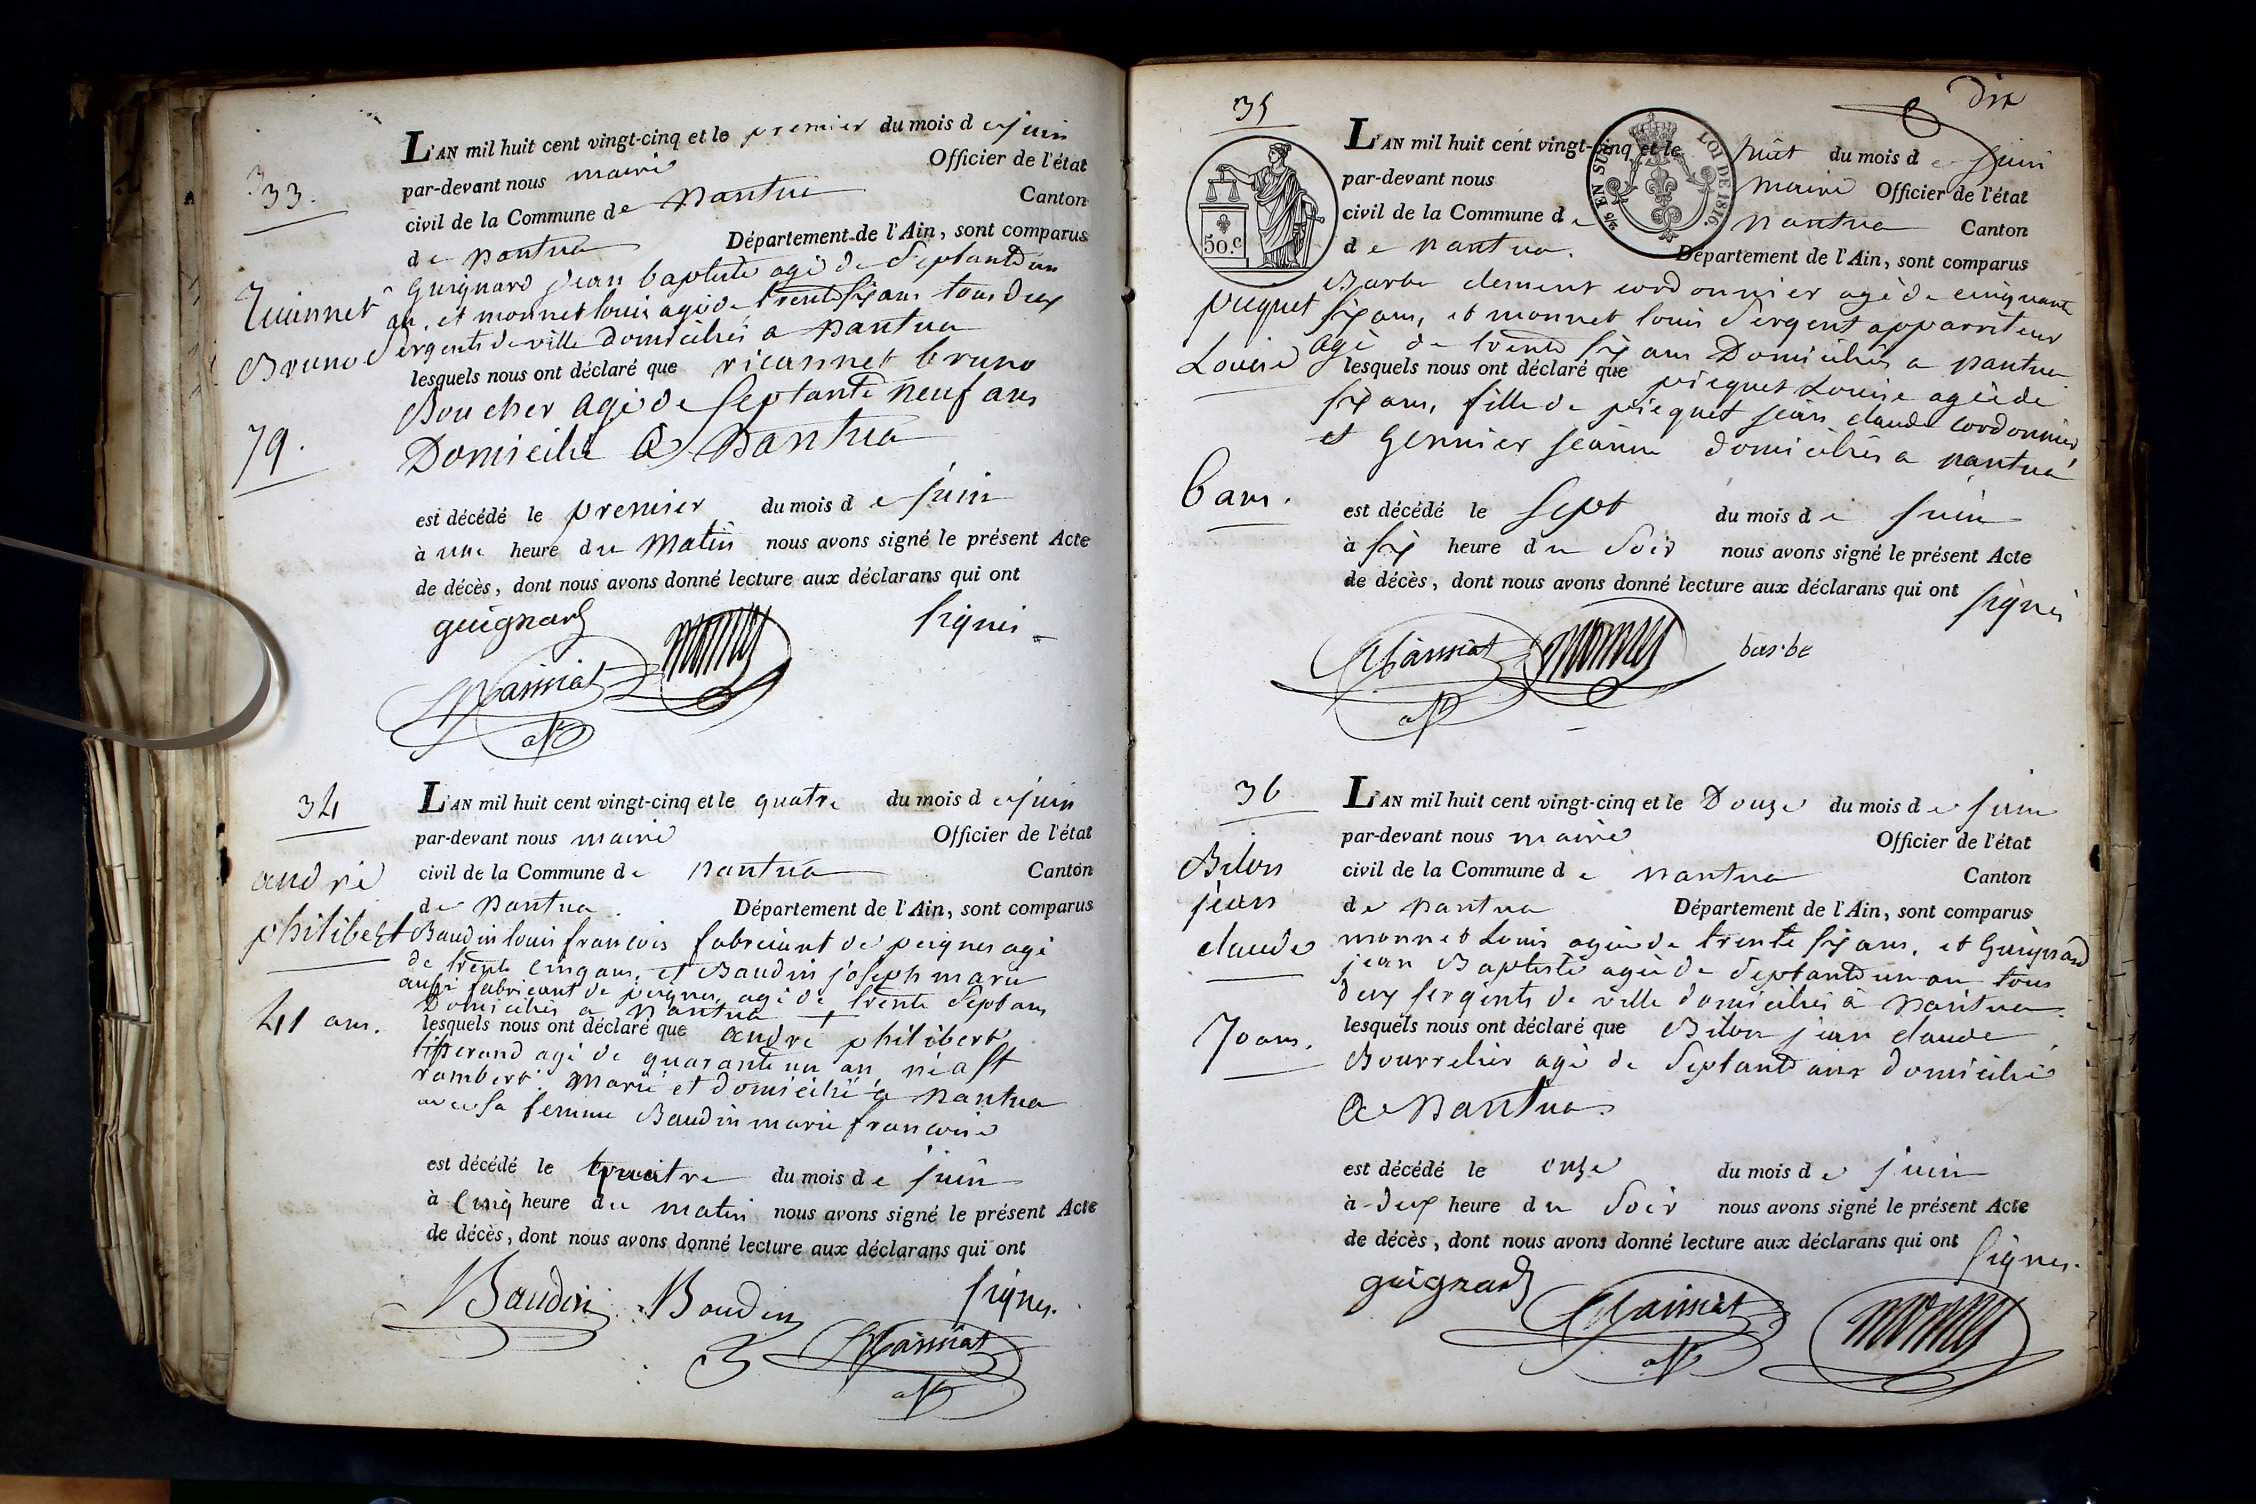 33.
L'AN mil huit cent vingt-cinq et le premier du mois de juin
par-devant nous maire Officier de l'état
civil de la Commune de nantua Canton
de nantua Département de l'Ain, sont comparus
Guignard jean baptiste agé de Septante un
an, et monnet louis agé de trente six ans tous deux
Sergents de ville Domiciliés a nantua
Bruno
lesquels nous ont déclaré que ricannet bruno
Boucher agé de Septante neuf ans
79.
Domicilié a nantua
est décédé le premier du mois de juin
à une heure du Matin nous avons signé le présent Acte
de décès, dont nous avons donné lecture aux déclarans qui ont
signés
guignard
monnet
34
L'AN mil huit cent vingt-cinq et le quatre du mois de juin
par-devant nous maire Officier de l'état
andré
civil de la Commune de nantua Canton
de nantua. Département de l'Ain, sont comparus
philibert
Baudin louis francois fabriquant de peignes agé
de trente cinq ans, et Baudin joseph marie
aussi fabricant de peignes, agé de trente Sept ans
Domiciliés a nantua
41 ans.
lesquels nous ont déclaré que andré philibert
tisserand agé de quarante un an, né a St
rambert. Marié et domicilié a nantua
avec sa femme Baudin marie francoise
est décédé le quatre du mois de juin
à Cinq heure du matin nous avons signé le présent Acte
de décès, dont nous avons donné lecture aux déclarans qui ont
signés.
Baudin Baudin
dix
35
L'AN mil huit cent vingt-cinq et le huit du mois de juin
par-devant nous maire Officier de l'état
civil de la Commune de nantua Canton
de nantua. Département de l'Ain, sont comparus
50.c
2/6 EN SUS
LOI DE 1816.
Barbe clement cordonnier agé de cinquante
six ans, et monnet louis Sergent apparriteur
agé de trente six ans Domiciliés a nantua
piquet
Louise
lesquels nous ont déclaré que picquet Louise agée de
six ans, fille de picquet jean claude cordonnier,
et Gennier jeanne domiciliés a nantua
6 ans.
est décédé le Sept du mois de juin
à six heure du Soir nous avons signé le présent Acte
de décès, dont nous avons donné lecture aux déclarans qui ont
signés
monnet
barbe
36
L'AN mil huit cent vingt-cinq et le Douze du mois de juin
par-devant nous maire Officier de l'état
Bilon
civil de la Commune de nantua Canton
jean
de nantua Département de l'Ain, sont comparus
claude
monnet Louis agé de trente six ans, et Guignard
jean Baptiste agé de Septante un an tous
deux sergents de ville domiciliés à nantua.
70 ans.
lesquels nous ont déclaré que Bilon jean claude
Bourrelier agé de Septante ans domicilié
a nantua
est décédé le onze du mois de juin
à deux heure du Soir nous avons signé le présent Acte
de décès, dont nous avons donné lecture aux déclarans qui ont
signés.
guignard
monnet